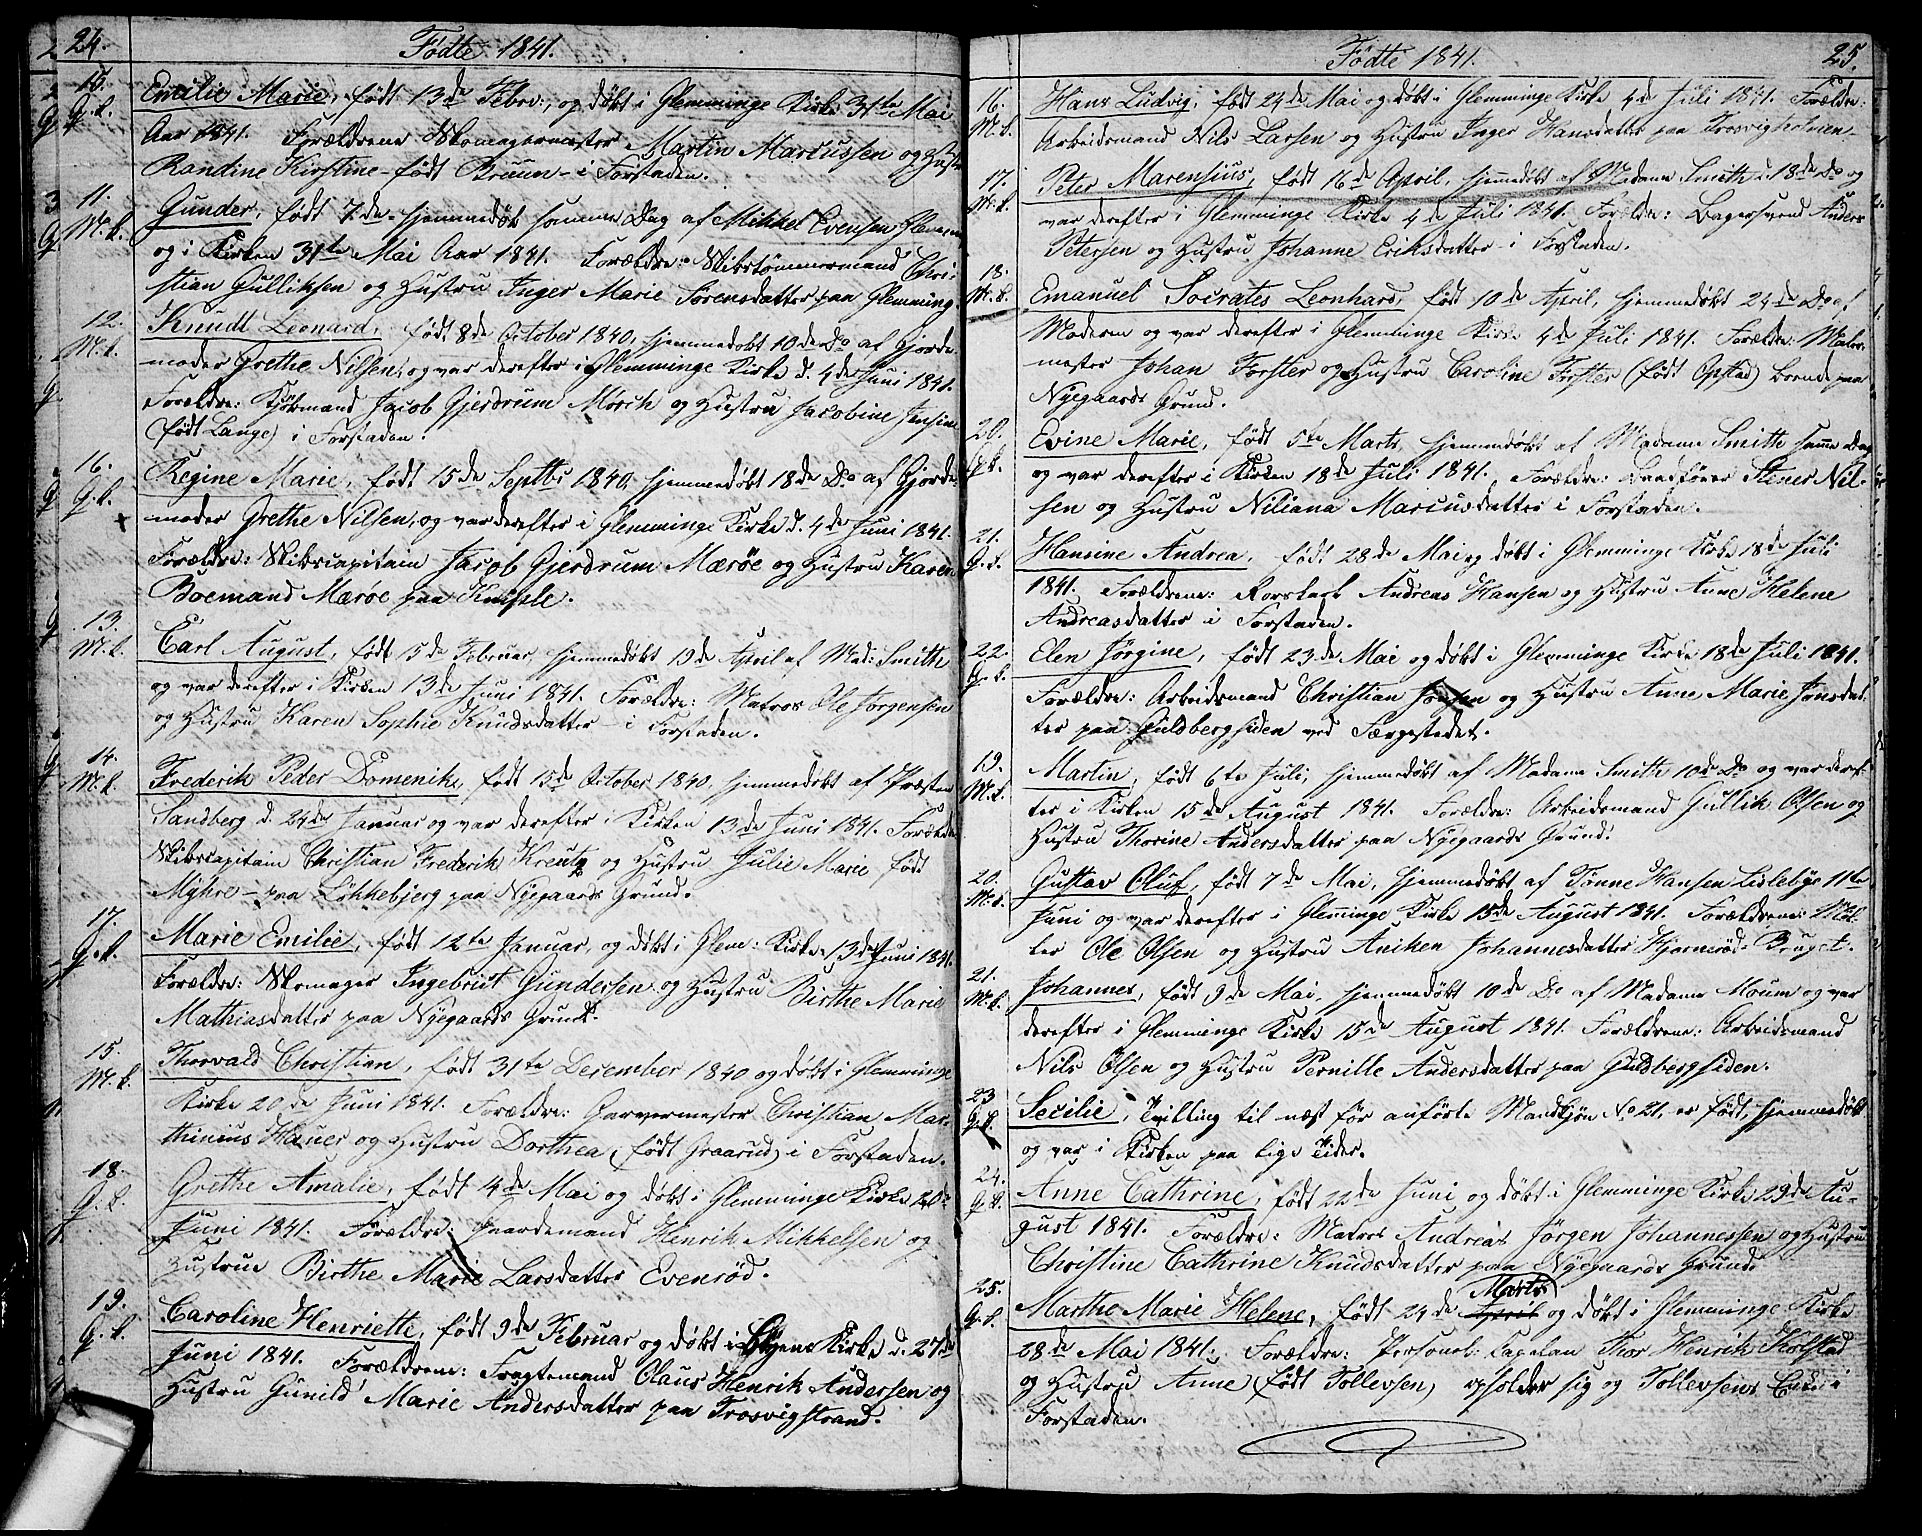 24.
Födte 1841.
15.
G.k.
Emilie Marie, født 13de Febr:, og døbt i Glemminge Kirke 31te Mai
Aar 1841. Forældrene Skomagermester Martin Marcussen og Hustr
Randine Kirstine - født Bruun - i Forstaden.
11.
M.k.
Gunder, født 7de hjemmedøbt samme Dag af Mikkel Evensen
og i Kirken 31te Mai Aar 1841. Forældre: Skibstømmermand Chri-
stian Gulliksen og Hustru Inger Marie Sørensdatter paa Glemming.
12.
M.k.
Knudt Leonard, født 8de October 1840, hjemmedøbt 10de Do af Gjorde-
moder Grethe Nilsen, og var derefter i Glemminge Kirke d. 4de Juni 1841.
Forældre: Kjøbmand Jacob Gjerdrum Morch og Hustru Jacobine Jensine
(født Lange) i Forstaden.
16.
G.k.
Regine Marie, født 15de Septbr 1840, hjemmedøbt 18de Do af Gjorde-
moder Grethe Nilsen, og var derefter i Glemminge Kirke d. 4de Juni 1841.
Forældre: Skibscapitain Jacob Gjerdrum Mærøe og Hustru Karen
Boemand Mærøe paa Knipple.
13.
M.k.
Carl August, født 15de Februar, hjemmedøbt 19de April af Mad: Smith
og var derefter i Kirken 13de Juni 1841. Forældre: Matros Ole Jørgensen
og Hustru Karen Sophie Knudsdatter - i Forstaden.
14.
M.k.
Frederik Peder Domenik, født 15de October 1840, hjemmedøbt af Præsten
Sandberg d. 24de Januar og var derefter i Kirken 13de Juni 1841. Forældre
Skibscapitain Christian Frederik Kreutz og Hustru Julie Marie, født
Myhre - paa Løkkebjerg paa Nygaards Grund.
17.
G.k.
Marie Emilie, født 12te Januar, og døbt i Glem: Kirke 13de Juni 1841.
Forældre: Skomager Ingebrit Gundersen og Hustru Birthe Marie
Mathiasdatter paa Nyegaards Grund.
15.
M.k.
Thorvald Christian, født 31te December 1840 og døbt i Glemminge
Kirke 20de Juni 1841. Forældre: Garvermester Christian Mar-
thinius Hauer og Hustru Dorthea (født Graarud) i Forstaden.
18.
G.k.
Grethe Amalie, født 4de Mai og døbt i Glemminge Kirke 20de
Juni 1841. Forældre: Gaardemand Henrik Mikkelsen og
Hustrue Birthe Marie Larsdatter Evenrød.
19.
G.k.
Caroline Henriette, født 9de Februar og døbt i Kirke d. 27de
Juni 1841. Forældrene: Fragtemand Olaus Henrik Andersen og
Hustru Gunild Marie Andersdatter paa Trosvigstrand.
Födte 1841.
25.
16.
M.k.
Hans Ludvig, født 24de Mai og døbt i Glemminge Kirke 4de Juli 1841. Forældre:
Arbeidsmand Nils Larsen og Hustru Inger Hansdatter paa Trosvigholmen.
17.
M.k.
Peter Marensius, født 16de April, hjemmedøbt af Madame Smith d. 18de Do og
var derefter i Glemminge Kirke 4de Juli 1841. Forældre: Bagersvend Anders
Petersen og Hustru Johanne Eriksdatter i Forstaden.
18.
M.k.
Emanuel Socrates Leonhard, født 10de April, hjemmedøbt 24de Do af
Moderen og var derefter i Glemminge Kirke 4de Juli 1841. Forældre: Maler-
mester Johan Forster og Hustru Caroline Forster (født Opstad) boende paa
Nyegaards Grund.
20.
G.k.
Evine Marie, født 5te Marts, hjemmedøbt af Madame Smith samme Dag
og var derefter i Kirken 18de Juli 1841. Forældre: Stener Nil-
sen og Hustru Niliana Marcusdatter i Forstaden.
21.
G.k.
Hansine Andrea, født 28de Mai og døbt i Glemminge Kirke 18de Juli
1841. Forældrene: Andreas Hansen og Hustru Anne Helene
Andreasdatter i Forstaden.
22.
G.k.
Elen Jørgine, født 23de Mai og døbt i Glemminge Kirke 18de Juli 1841.
Forældre: Arbeidsmand Christian Jensen og Hustru Anne Marie Jonsdat-
ter paa Guldbergsiden ved Færgestedet.
19.
M.k.
Martin, født 6te Juli, hjemmedøbt af Madame Smith 10de Do og var deref-
ter i Kirken 15de August 1841. Forældre: Arbeidsmand Gullik Olsen og
Hustru Thorine Andersdatter paa Nyegaards Grund.
20.
M.k.
Gustav Oluf, født 7de Mai, hjemmedøbt af Tønne Hansen Lisleby 11te
Juni og var derefter i Glemminge Kirke 15de August 1841. Forældrene: Møl-
ler Ole Olsen og Hustru Aniken Johannesdatter Hjernerød Bruget.
21.
M.k.
Johannes, født 9de Mai, hjemmedøbt 10de Do af Madame Moum og var
derefter i Glemminge Kirke 15de August 1841. Forældrene: Arbeidsmand
Nils Olsen og Hustru Pernille Andersdatter paa Guldbergsiden.
23
G.k.
Secilie, Tvilling til næst før anførte Mandkjøn No 21. er født, hjemmedøbt
og var i Kirken paa lige Tider.
24.
G.k.
Anne Cathrine, født 22de Juni og døbt i Glemminge Kirke 29de Au-
gust 1841. Forældre: Matros Andreas Jørgen Johannessen og Hustru
Christine Cathrine Knudsdatter paa Nyegaards Grund.
25.
G.k.
Marthe Marie Helene, født 24de April Marts og døbt i Glemminge Kirke
28de Mai 1841. Forældre: Personel Capelan Thor Henrik Holstad
og Hustru Anne (født Tollevsen) opholder sig og Tollevsens i
Forstaden.